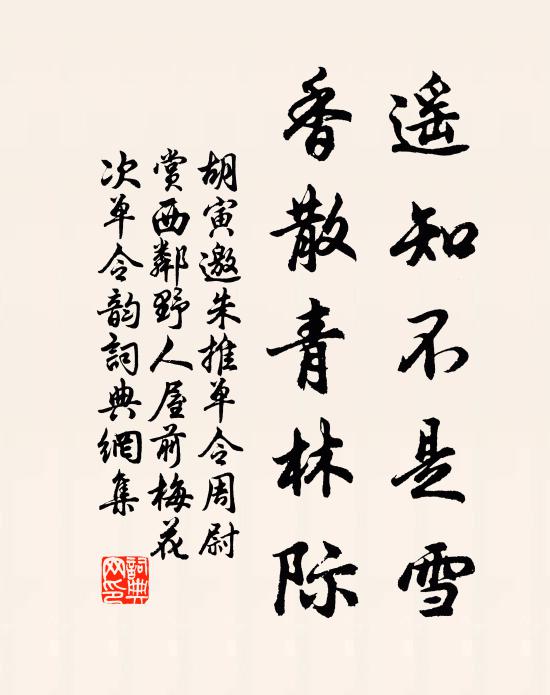 遥知不是雪
香散青林际
胡寅邀朱推单令周尉
赏西鄰野人屋前梅花
次单令韵詞典網集
詞典
网印